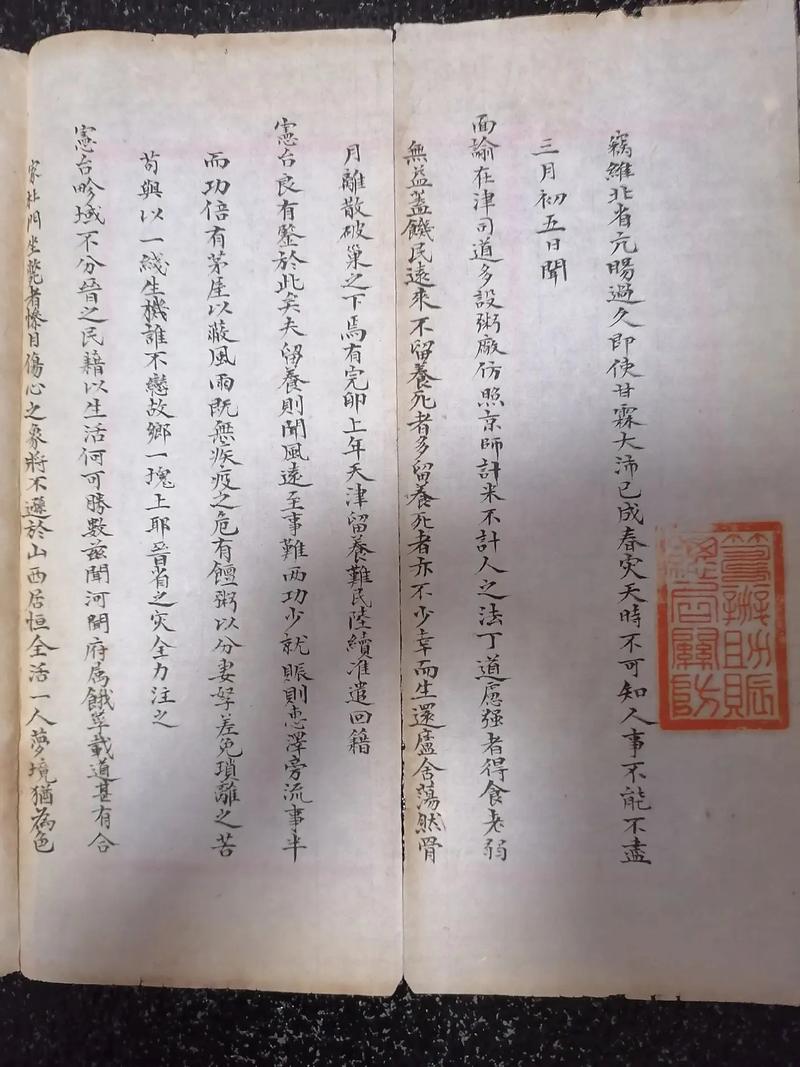 竊維北省亢暘過久即使甘霖大沛已成春灾天時不可知人事不能不盡
三月初五日聞
面諭在津司道多設粥廠仿照京師計米不計人之法丁道慮强者得食老弱
無益蓋饑民遠來不留養死者多留養死者亦不少幸而生還廬舍蕩然骨
月離散破巢之下焉有完卵上年天津留養難民陸續准遣回籍
憲台良有鑒於此矣夫留養則聞風遠至事難而功少就賑則惠澤旁流事半
而功倍有茅屋以蔽風雨既無疾疫之危有饘粥以分妻孥差免瑣離之苦
苟與以一綫生機誰不戀故鄉一塊土耶晉省之灾全力注之
憲台畛域不分晉之民籍以生活何可勝數茲聞河間府属餓莩載道甚有合
家杜門坐斃者慘目傷心之象將不遜於山西居恒全活一人夢境猶為色
籌辦助賑
總局關防